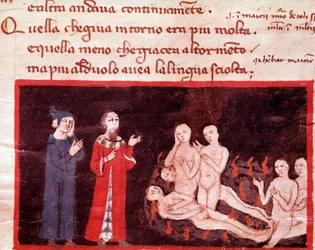 e altra andaua continuamete.
Quella che giua intorno era piu molta.
e quella meno che giacea al tormeto
ma piu al duolo auea la lingua sciolta;